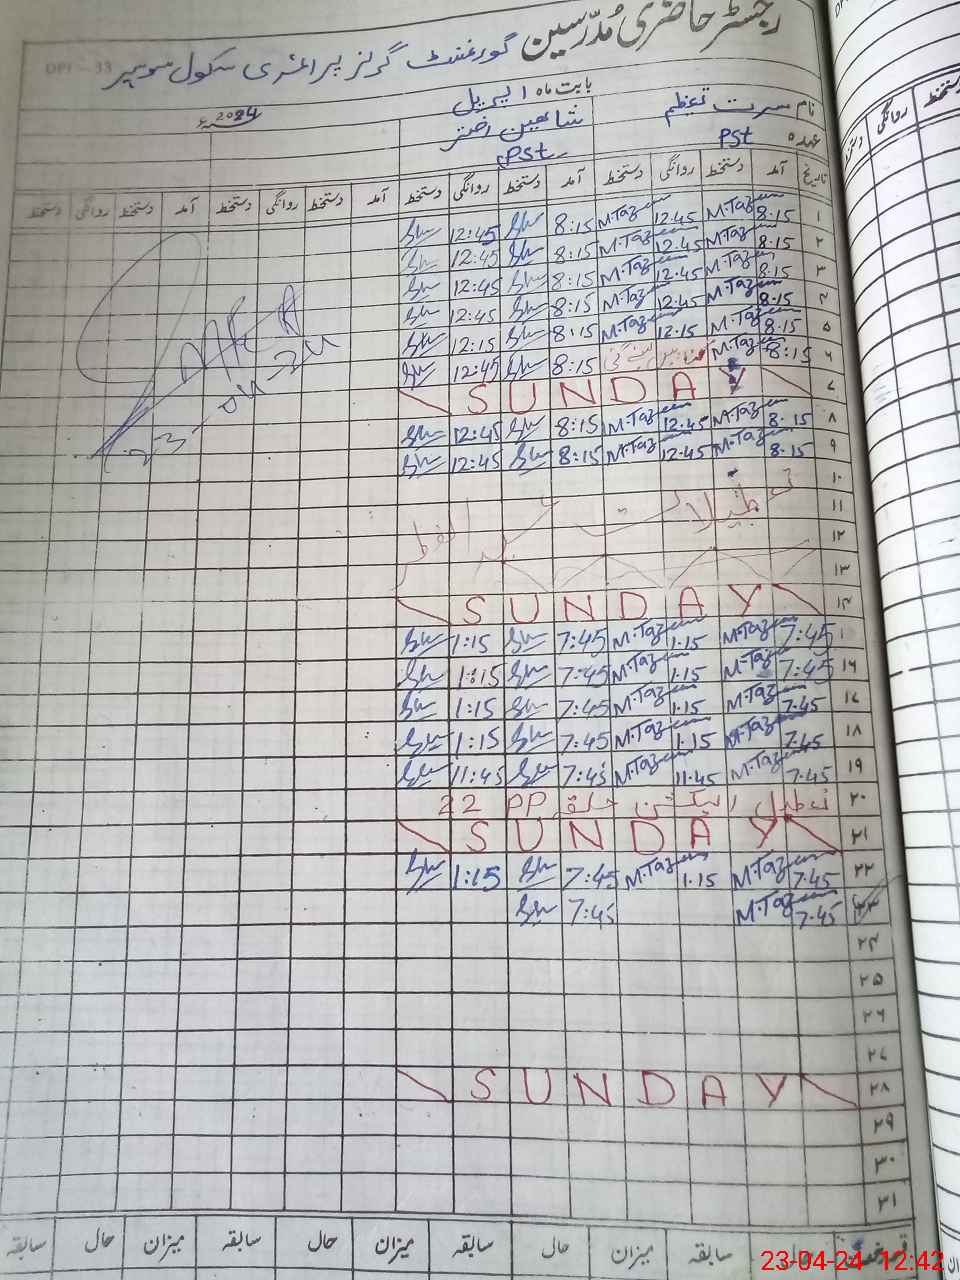 رجسٹر حاضری مُدرّسین
گورنمنٹ گرلز پرائمری سکول
DPI - 33
بابت ماہ اپریل 2024ء
نام مسرت تعظیم شاہین اختر
عہدہ PST PST
تاریخ آمد دستخط روانگی دستخط آمد دستخط روانگی دستخط آمد دستخط روانگی دستخط آمد دستخط روانگی دستخط
۱ 8:15 M.Tazeem 12:45 M.Tazeem 8:15 12:45
۲ 8:15 M.Tazeem 12:45 M.Tazeem 8:15 12:45
۳ 8:15 M.Tazeem 12:45 M.Tazeem 8:15 12:45
۴ 8:15 M.Tazeem 12:45 M.Tazeem 8:15 12:45
۵ 8:15 M.Tazeem 12:15 M.Tazeem 8:15 12:15
۶ 8:15 M.Tazeem 8:15 12:45
۷ SUNDAY
۸ 8:15 M.Tazeem 12:45 M.Tazeem 8:15 12:45
۹ 8:15 M.Tazeem 12:45 M.Tazeem 8:15 12:45
۱۰
۱۱ تعطیلات عید الفطر
۱۲
۱۳
۱۴ SUNDAY
7:45 M.Tazeem 1:15 M.Tazeem 7:45 1:15
۱۶ 7:45 M.Tazeem 1:15 M.Tazeem 7:45 1:15
۱۷ 7:45 M.Tazeem 1:15 M.Tazeem 7:45 1:15
۱۸ 7:45 M.Tazeem 1:15 M.Tazeem 7:45 1:15
۱۹ 7:45 M.Tazeem 11:45 M.Tazeem 7:45 11:45
۲۰ تعطیل الیکشن حلقہ PP 22
۲۱ SUNDAY
۲۲ 7:45 M.Tazeem 1:15 M.Tazeem 7:45 1:15
۲۳ 7:45 M.Tazeem 7:45
۲۴
۲۵
۲۶
۲۷
۲۸ SUNDAY
۲۹
۳۰
۳۱
حال سابقہ میزان حال سابقہ میزان حال سابقہ میزان حال سابقہ
MEA
23-04-24
23-04-24 12:42